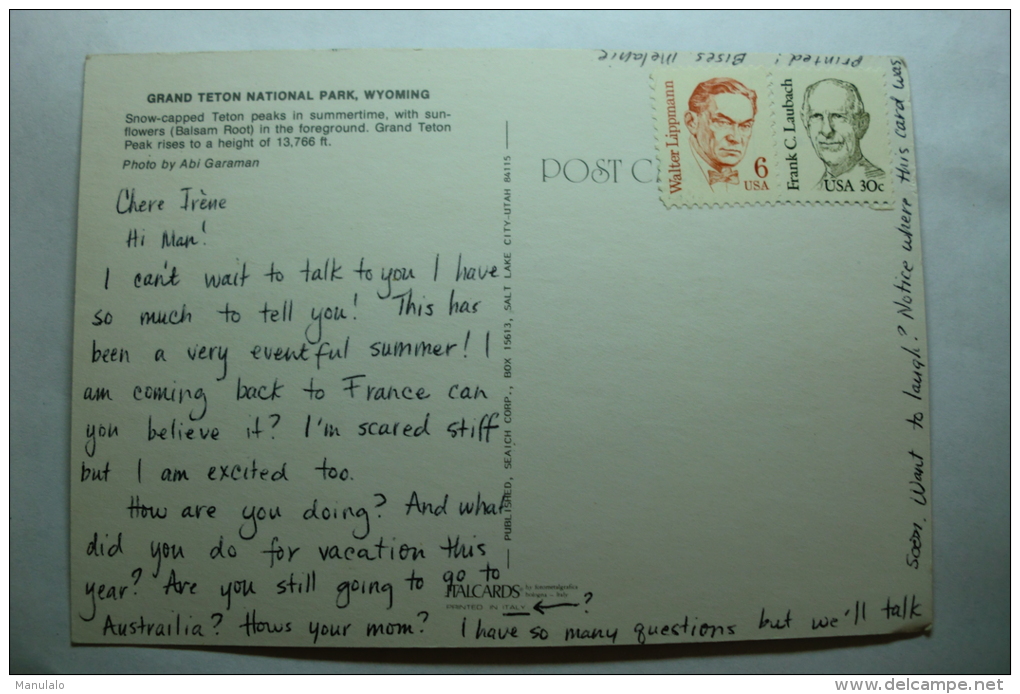 GRAND TETON NATIONAL PARK, WYOMING
Snow-capped Teton peaks in summertime, with sun-
flowers (Balsam Root) in the foreground. Grand Teton
Peak rises to a height of 13,766 ft.
Photo by Abi Garaman
Chere Irène
Hi Man!
I can't wait to talk to you I have
so much to tell you! This has
been a very eventful summer! I
am coming back to France can
you believe it? I'm scared stiff
but I am excited too.
How are you doing? And what
did you do for vacation this
year? Are you still going to go to
Austrailia? Hows your mom? I have so many questions but we'll talk
soon. Want to laugh? Notice where this card was
printed! Bises Melanie
PUBLISHED, SEAICH CORP., BOX 15613, SALT LAKE CITY-UTAH 84115
ITALCARDS
bologna - italy
PRINTED IN ITALY ?
POST C
Walter Lippmann
6
USA
Frank C. Laubach
USA 30c
Manulalo
delcampe.net